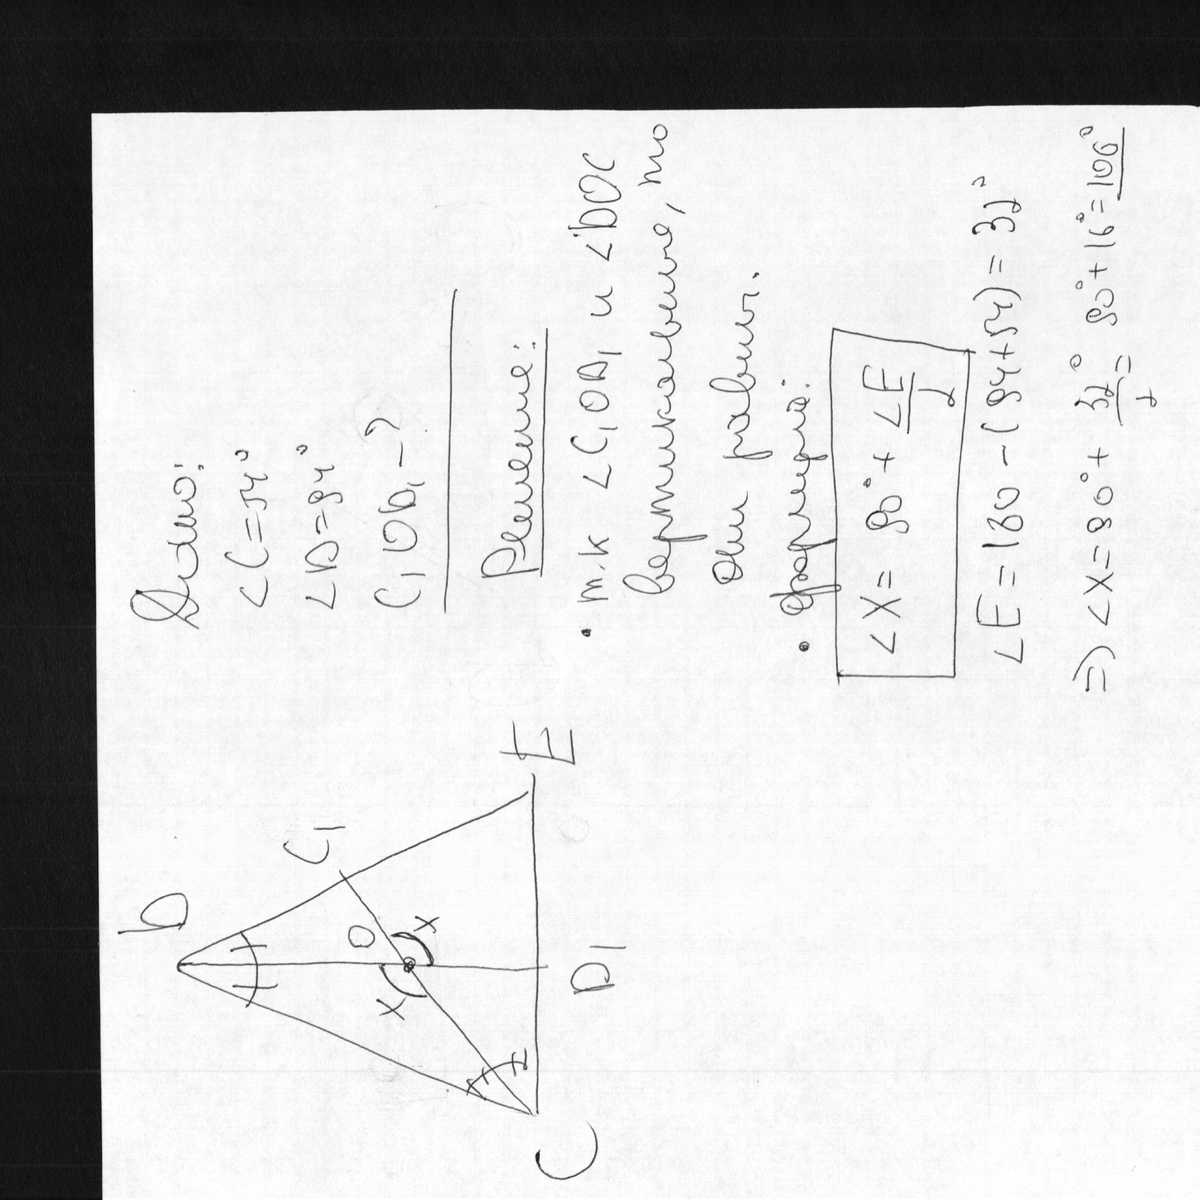 Дано:
∠C=54°
∠D=94°
C₁OD₁-?
Решение:
• т.к ∠C₁OD₁ и ∠DOC
вертикальные, то
они равны.
• формула:
∠X = 90° + ∠E/2
∠E = 180 - (94+54) = 32°
=> ∠X = 90° + 32°/2 = 90° + 16° = 106°
D
C₁
O
X
X
C
D1
E